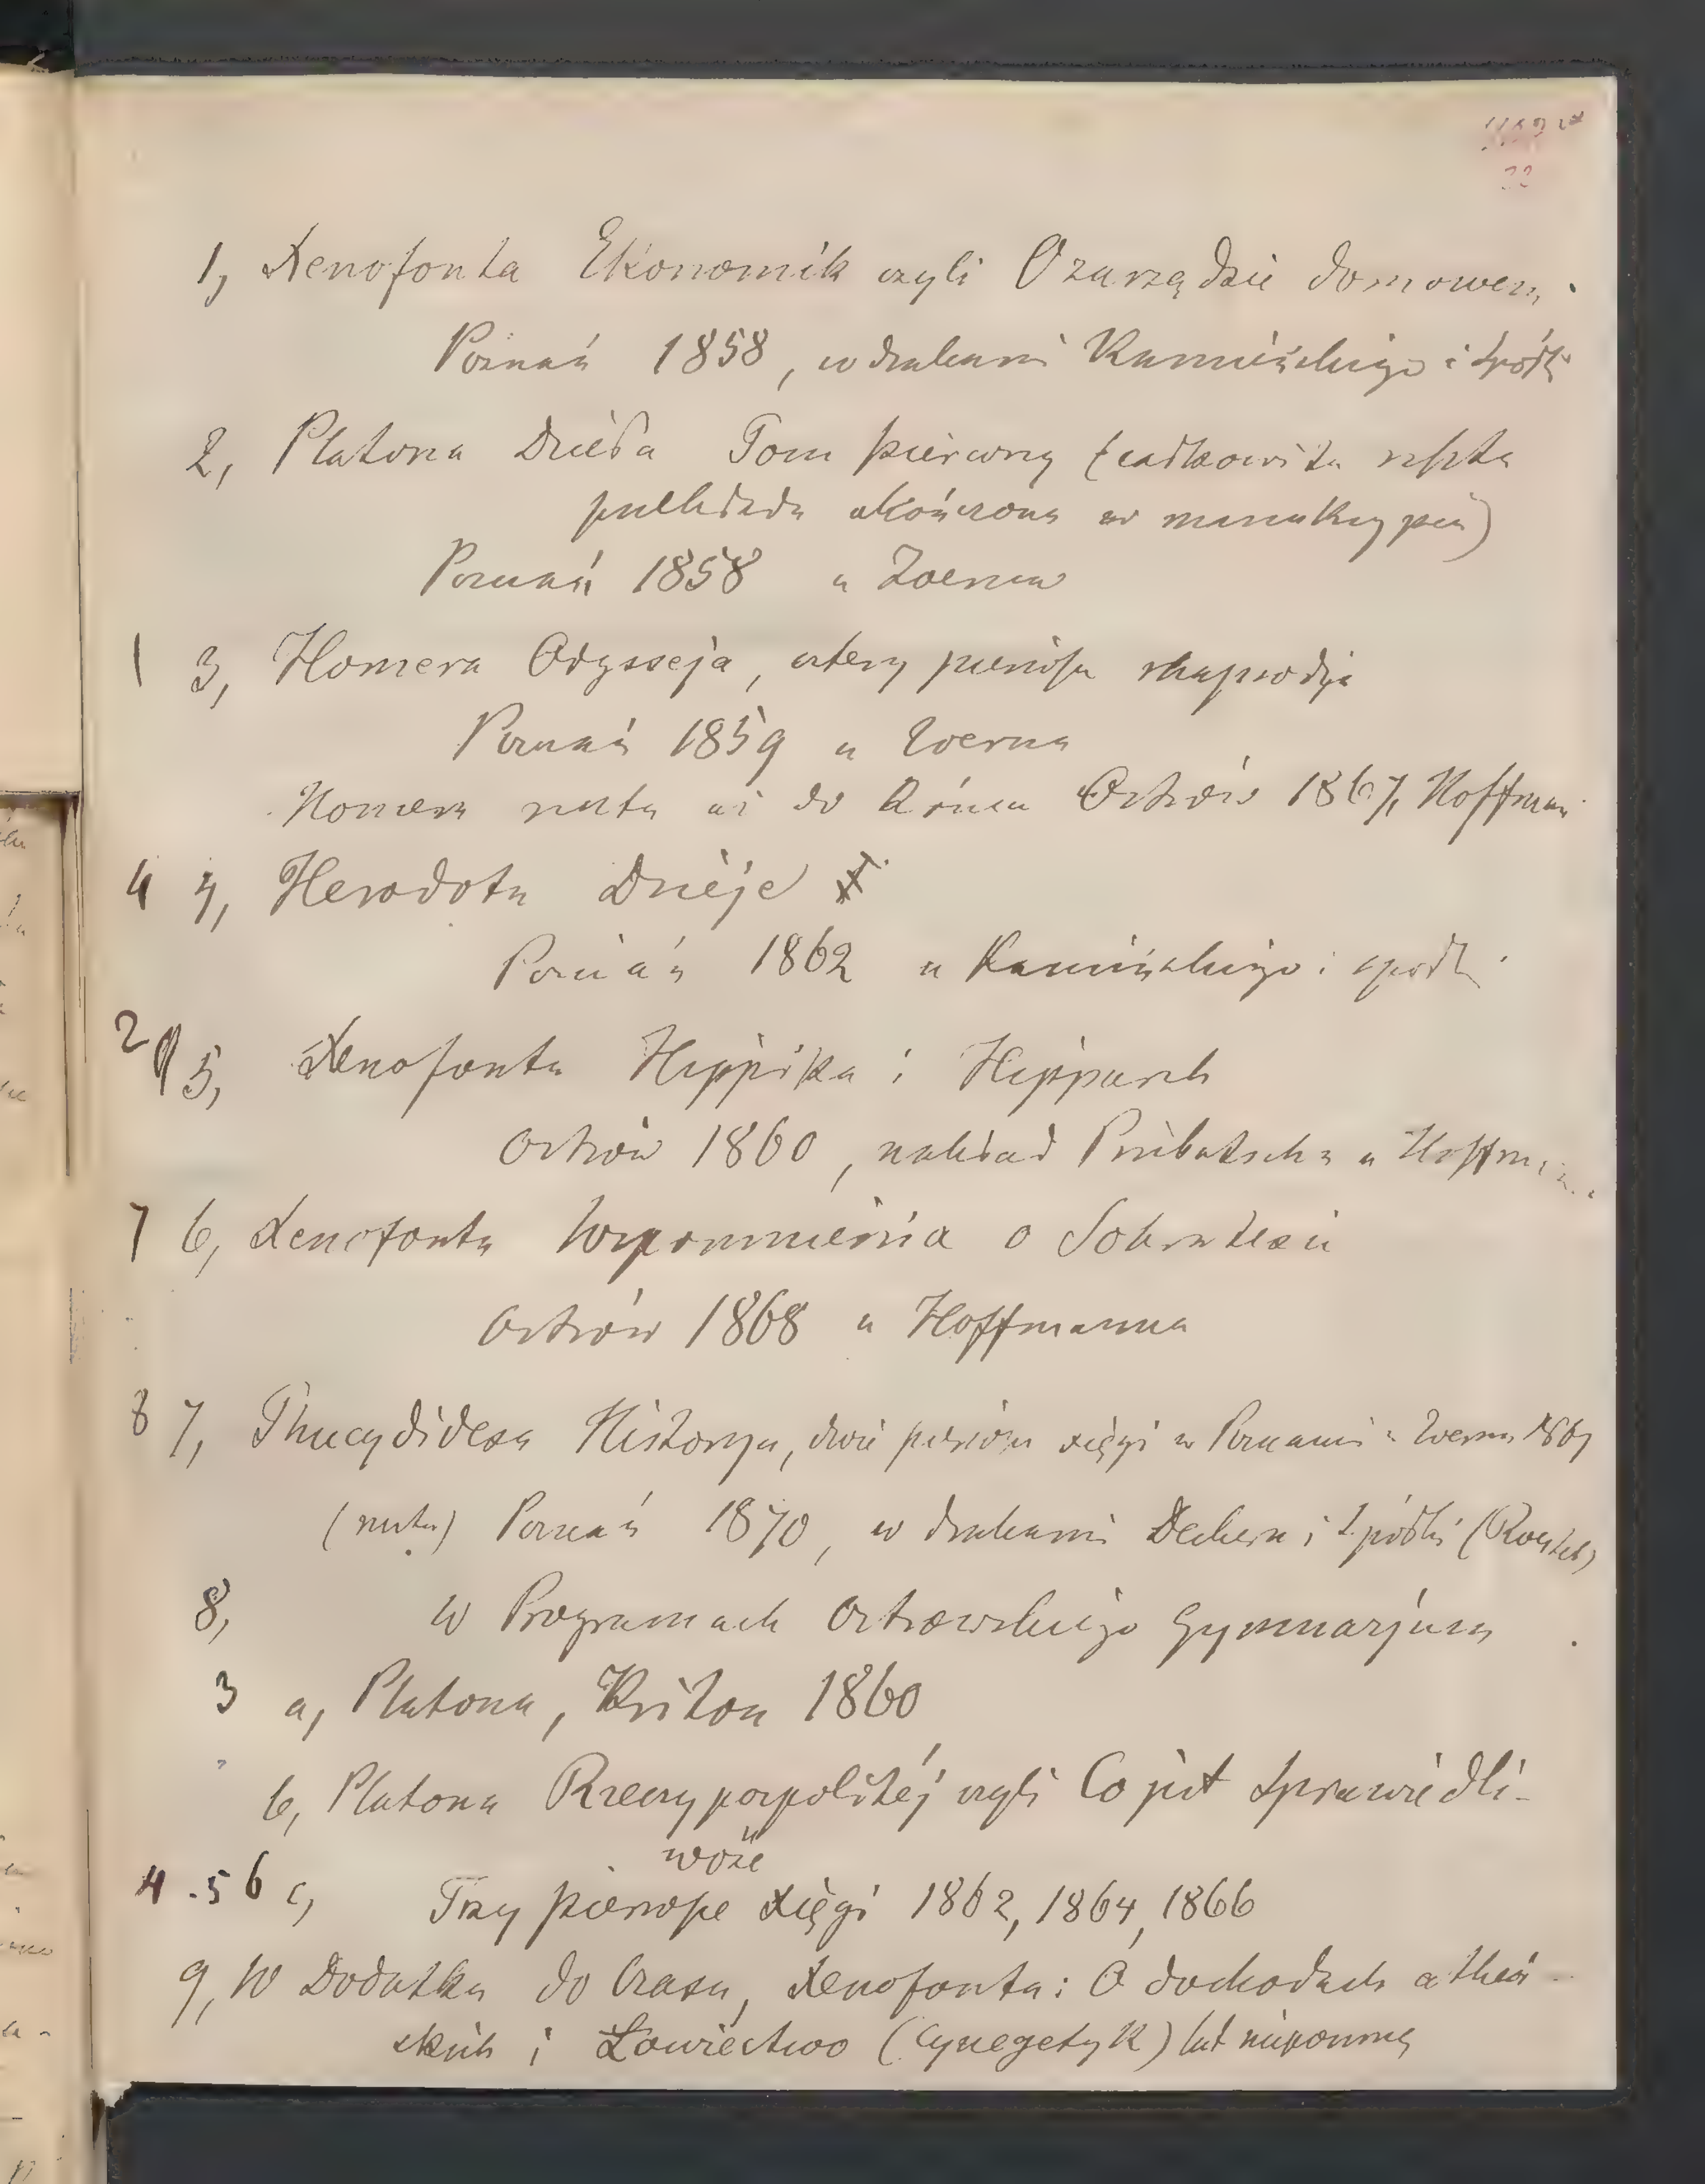 1, Xenofonta Ekonomik czyli O zarządzie domowem.
Poznań 1858, w drukarni Kamieńskiego i Spółki
2, Platona Dzieła Tom pierwszy (całkowita reszta
przekładu ukończona w manuskrypcie)
Poznań 1858 u Zoerna
1 3, Homera Odysseja, cztery pierwsze rhapsodje
Poznań 1859 u Zoerna
Homera reszta aż do końca Ostrów 1867, Hoffman
4 4, Herodota Dzieje
Poznań 1862 u Kamieńskiego i spółki
2 5, Xenofonta Hippika i Hipparch
Ostrów 1860, nakład Priebatscha u Hoffmanna
7 6, Xenofonta Wspomnienia o Sokratesie
Ostrów 1868 u Hoffmanna
8 7, Thucydidesa Historya, dwie pierwsze xięgi w Poznaniu u Zoerna
(reszta) Poznań 1870, w drukarni Deckera i Spółki (Roestel)
8, w Programach Ostrowskiego Gymnazjum
3 a, Platona, Kriton 1860
b, Platona Rzeczypospolitéj czyli Co jest Sprawiedli-
wość
4.5 6 c, Trzy pierwsze xięgi 1862, 1864, 1866
9, W Dodatku do Czasu, Xenofonta: O dochodach atheń-
skich i Łowiectwo (Cynegetyk) lat niepomnę